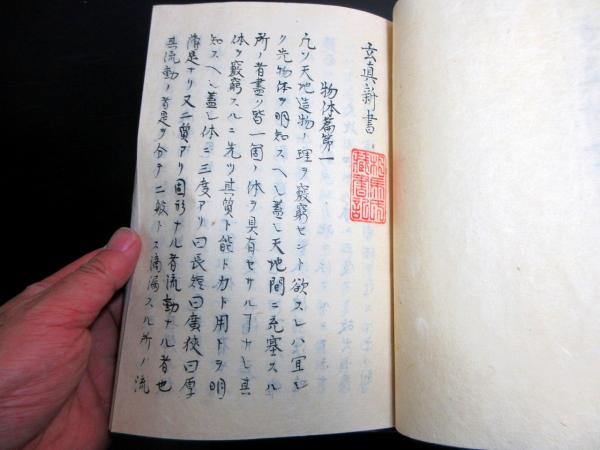 玄真新書
物体篇第一
凡ソ天地造物ノ理ヲ竅窮セント欲スレハ宜シ
ク先物体ヲ明知スヘシ蓋シ天地間ニ充塞スル
所ノ者盡ク皆一箇ノ体ヲ具有セサルヿナシ其
体ヲ竅窮スルニ先ツ其質ト能ト力ト用トヲ明
知スヘシ蓋シ体ニ三度アリ曰長短曰廣狹曰厚
薄是ナリ又二質アリ固形ナル者流動ナル者也
其流動ノ者是ヲ分チ二般トス滴漏スル所ノ流
藏書記